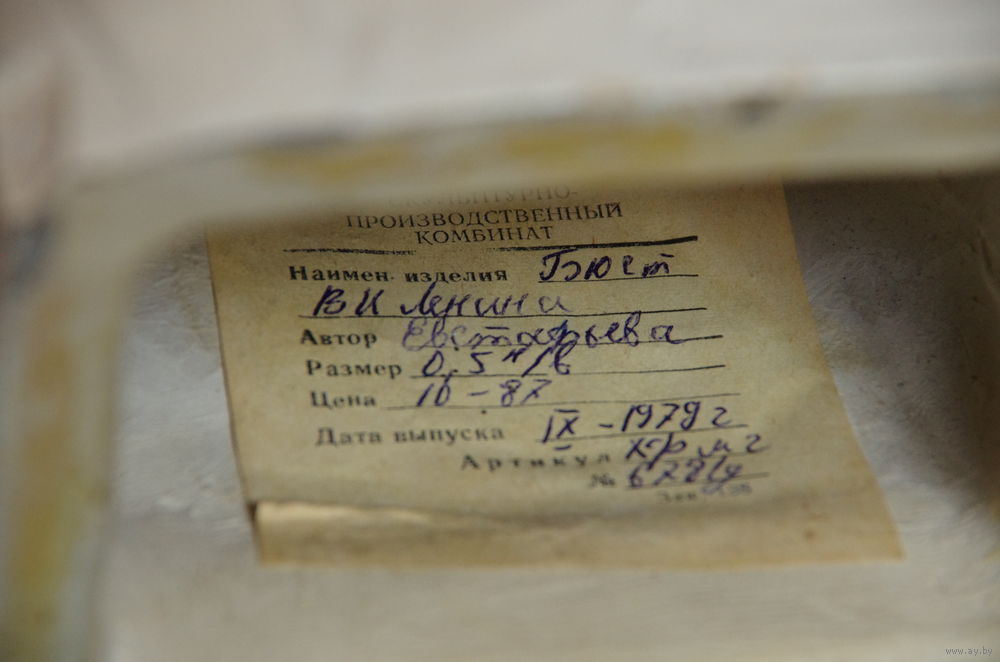 СКУЛЬПТУРНО-
ПРОИЗВОДСТВЕННЫЙ
КОМБИНАТ
Наимен. изделия Бюст
В И Ленина
Автор Евстафьева
Размер 0,5 н/в
Цена 10-87
Дата выпуска IX-1979 г
Артикул
№
Зак
www.ay.by